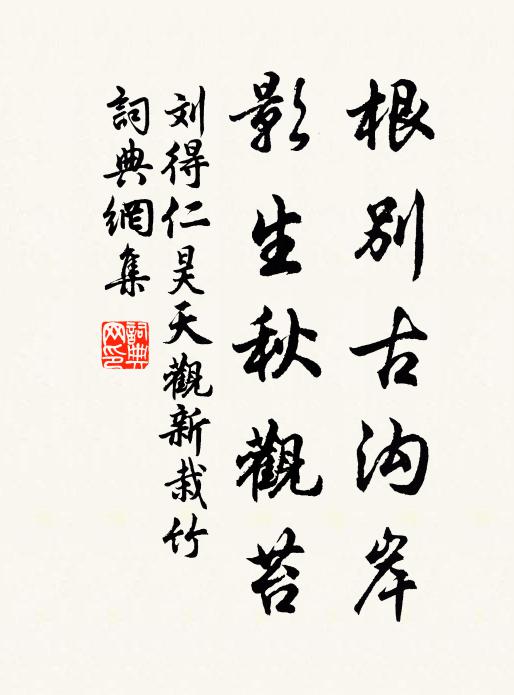 根别古沟岸
影生秋觀苔
刘得仁昊天觀新栽竹
詞典網集
詞典网印